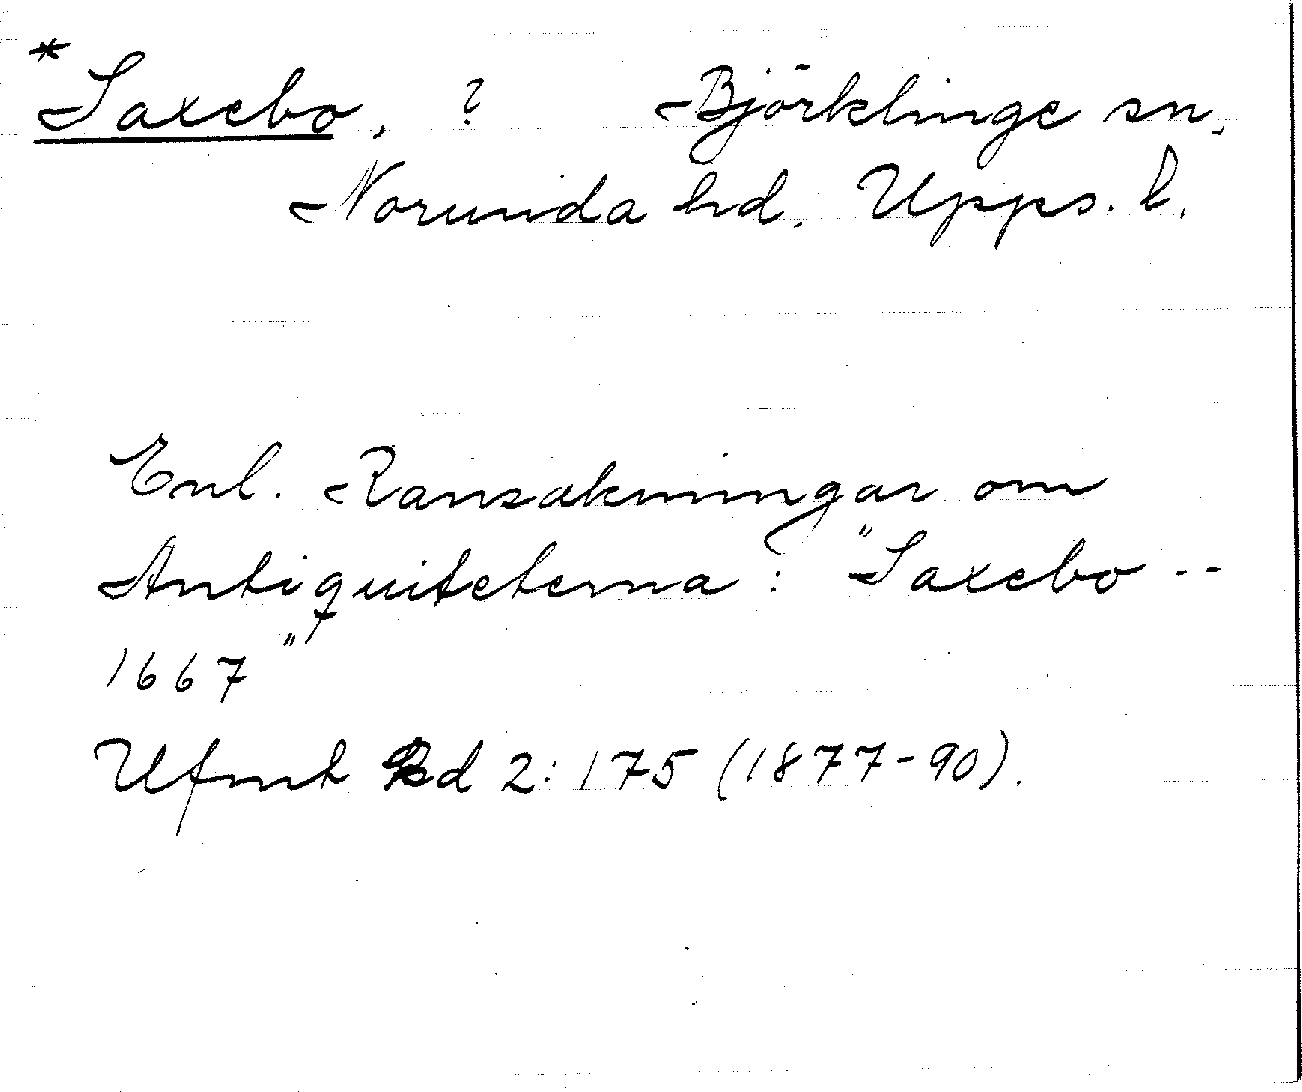 *Saxebo, ? Björklinge sn,
Norunda hd, Upps. l.
Enl. Ransakningar om
Antiquiteterna: "Saxebo --
1667"
Ufmt Bd 2:175 (1877-90).